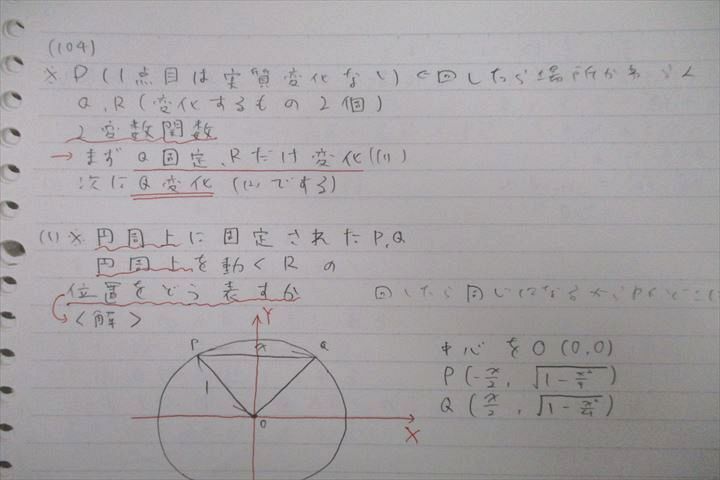 (104)
※ P (1点目は実質変化ない) ∵回したら場所が
Q, R (変化するもの2個)
2変数関数
→ まず Q固定、Rだけ変化 ((1))
次に Q変化 ((2)でする)
(1) ※ 円周上に固定された P, Q
円周上を動く R の
位置をどう表すか
回したら同じになるから Pは
<解>
Y
P x Q
1
O
X
中心を O (0,0)
P (-x/2, √(1-x²/4))
Q (x/2, √(1-x²/4))